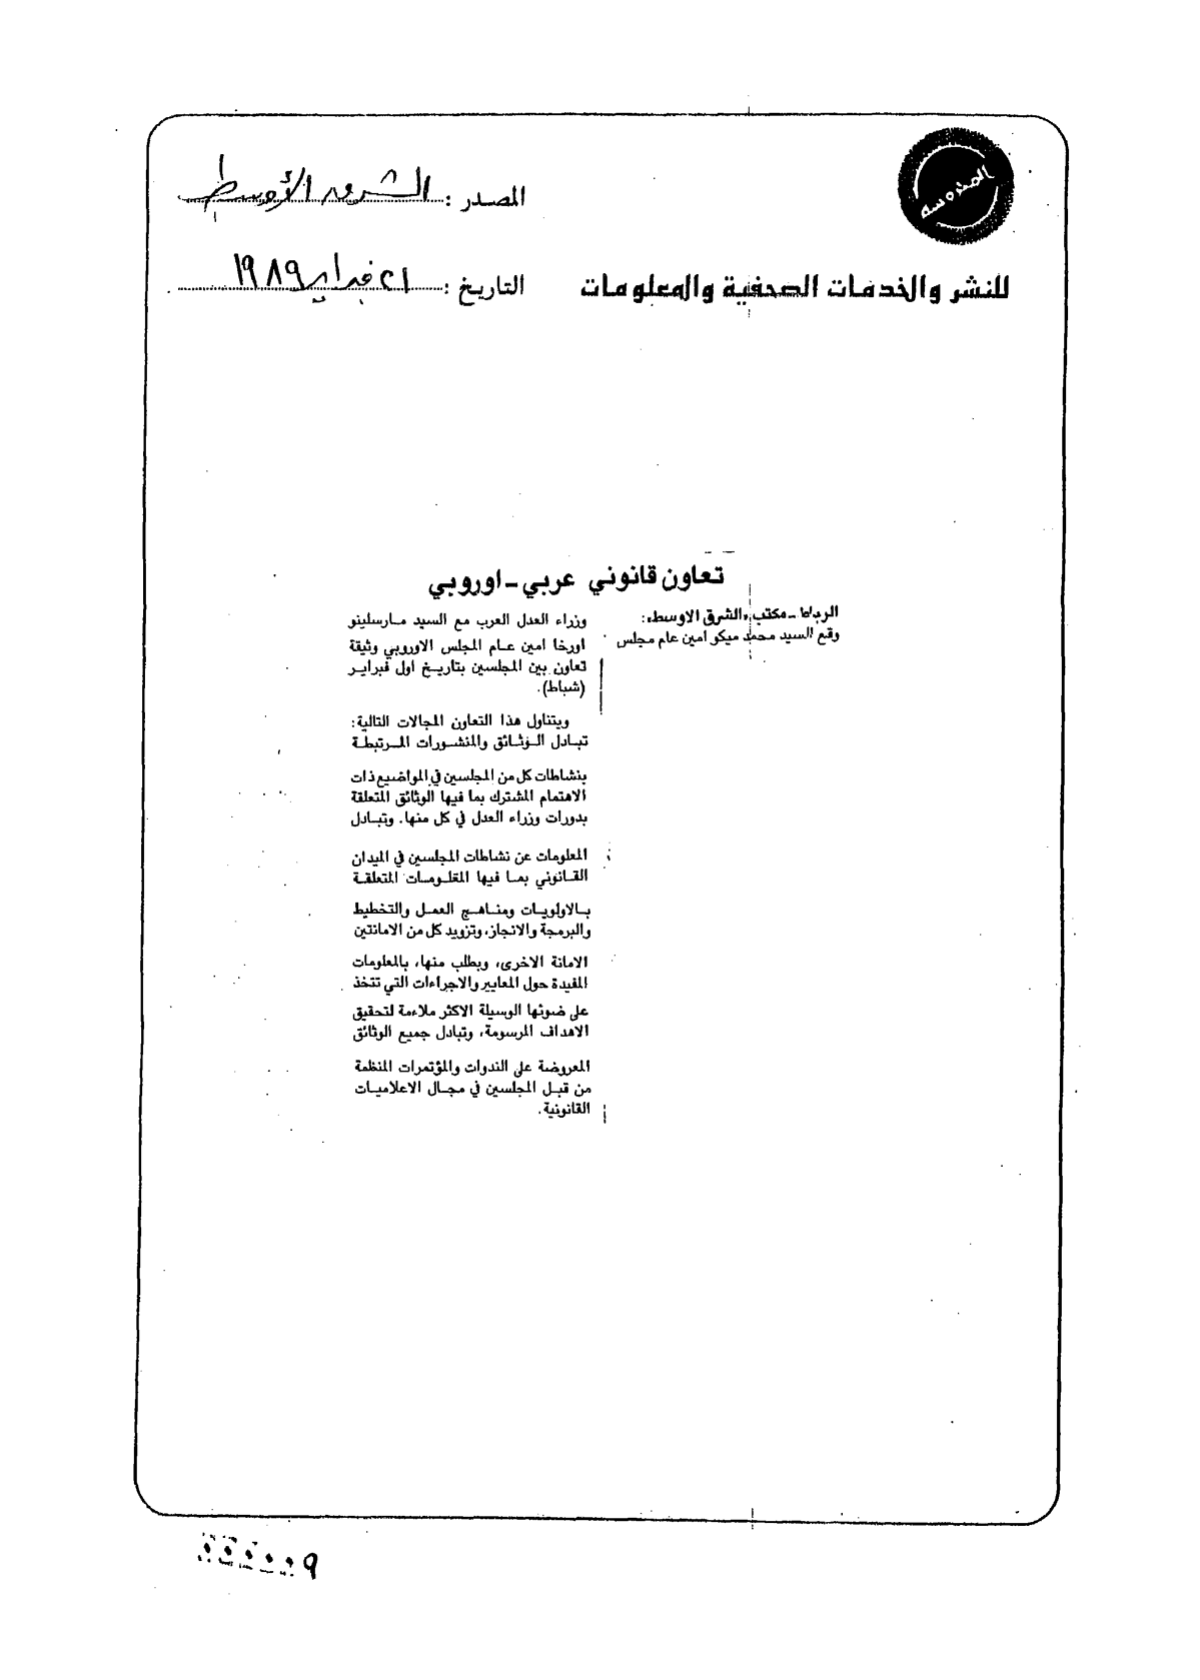 المحروسة
المصدر : الشرق الأوسط
للنشر والخدمات الصحفية والمعلومات
التاريخ : ٢١ فبراير ١٩٨٩
تعاون قانوني عربي - اوروبي
الرباط - مكتب «الشرق الاوسط»:
وقع السيد محمد ميكو امين عام مجلس
وزراء العدل العرب مع السيد مارسلينو
اورخا امين عام المجلس الاوروبي وثيقة
تعاون بين المجلسين بتاريخ اول فبراير
(شباط).
ويتناول هذا التعاون المجالات التالية:
تبادل الوثائق والمنشورات المرتبطة
بنشاطات كل من المجلسين في المواضيع ذات
الاهتمام المشترك بما فيها الوثائق المتعلقة
بدورات وزراء العدل في كل منها. وتبادل
المعلومات عن نشاطات المجلسين في الميدان
القانوني بما فيها المعلومات المتعلقة
بالاولويات ومناهج العمل والتخطيط
والبرمجة والانجاز، وتزويد كل من الامانتين
الامانة الاخرى، وبطلب منها، بالمعلومات
المفيدة حول المعايير والاجراءات التي تتخذ
على ضوئها الوسيلة الاكثر ملاءمة لتحقيق
الاهداف المرسومة، وتبادل جميع الوثائق
المعروضة على الندوات والمؤتمرات المنظمة
من قبل المجلسين في مجال الاعلاميات
القانونية.